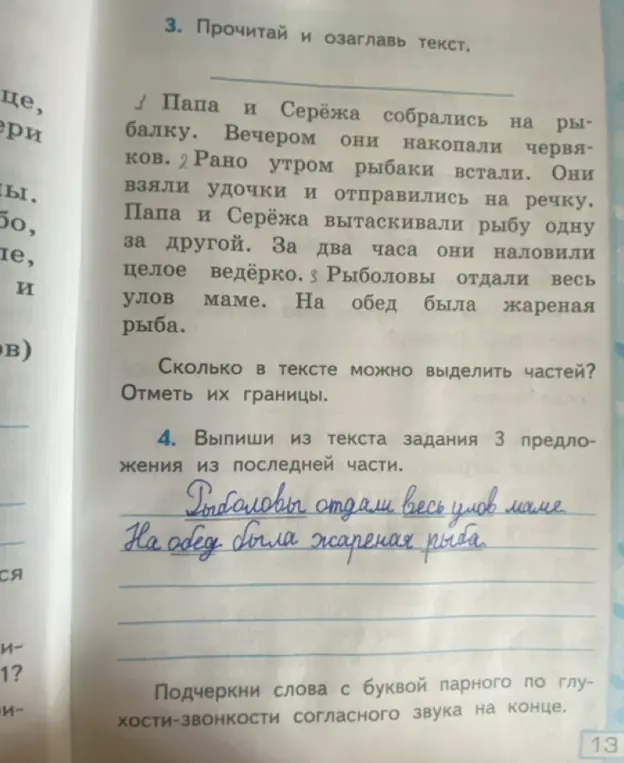 це,
ери
ы.
бо,
ле,
и
ов)
ся
и-
1?
ри-
3. Прочитай и озаглавь текст.
1 Папа и Серёжа собрались на ры-
балку. Вечером они накопали червя-
ков. 2 Рано утром рыбаки встали. Они
взяли удочки и отправились на речку.
Папа и Серёжа вытаскивали рыбу одну
за другой. За два часа они наловили
целое ведёрко. 3 Рыболовы отдали весь
улов маме. На обед была жареная
рыба.
Сколько в тексте можно выделить частей?
Отметь их границы.
4. Выпиши из текста задания 3 предло-
жения из последней части.
Рыболовы отдали весь улов маме
На обед была жареная рыба
Подчеркни слова с буквой парного по глу-
хости-звонкости согласного звука на конце.
13